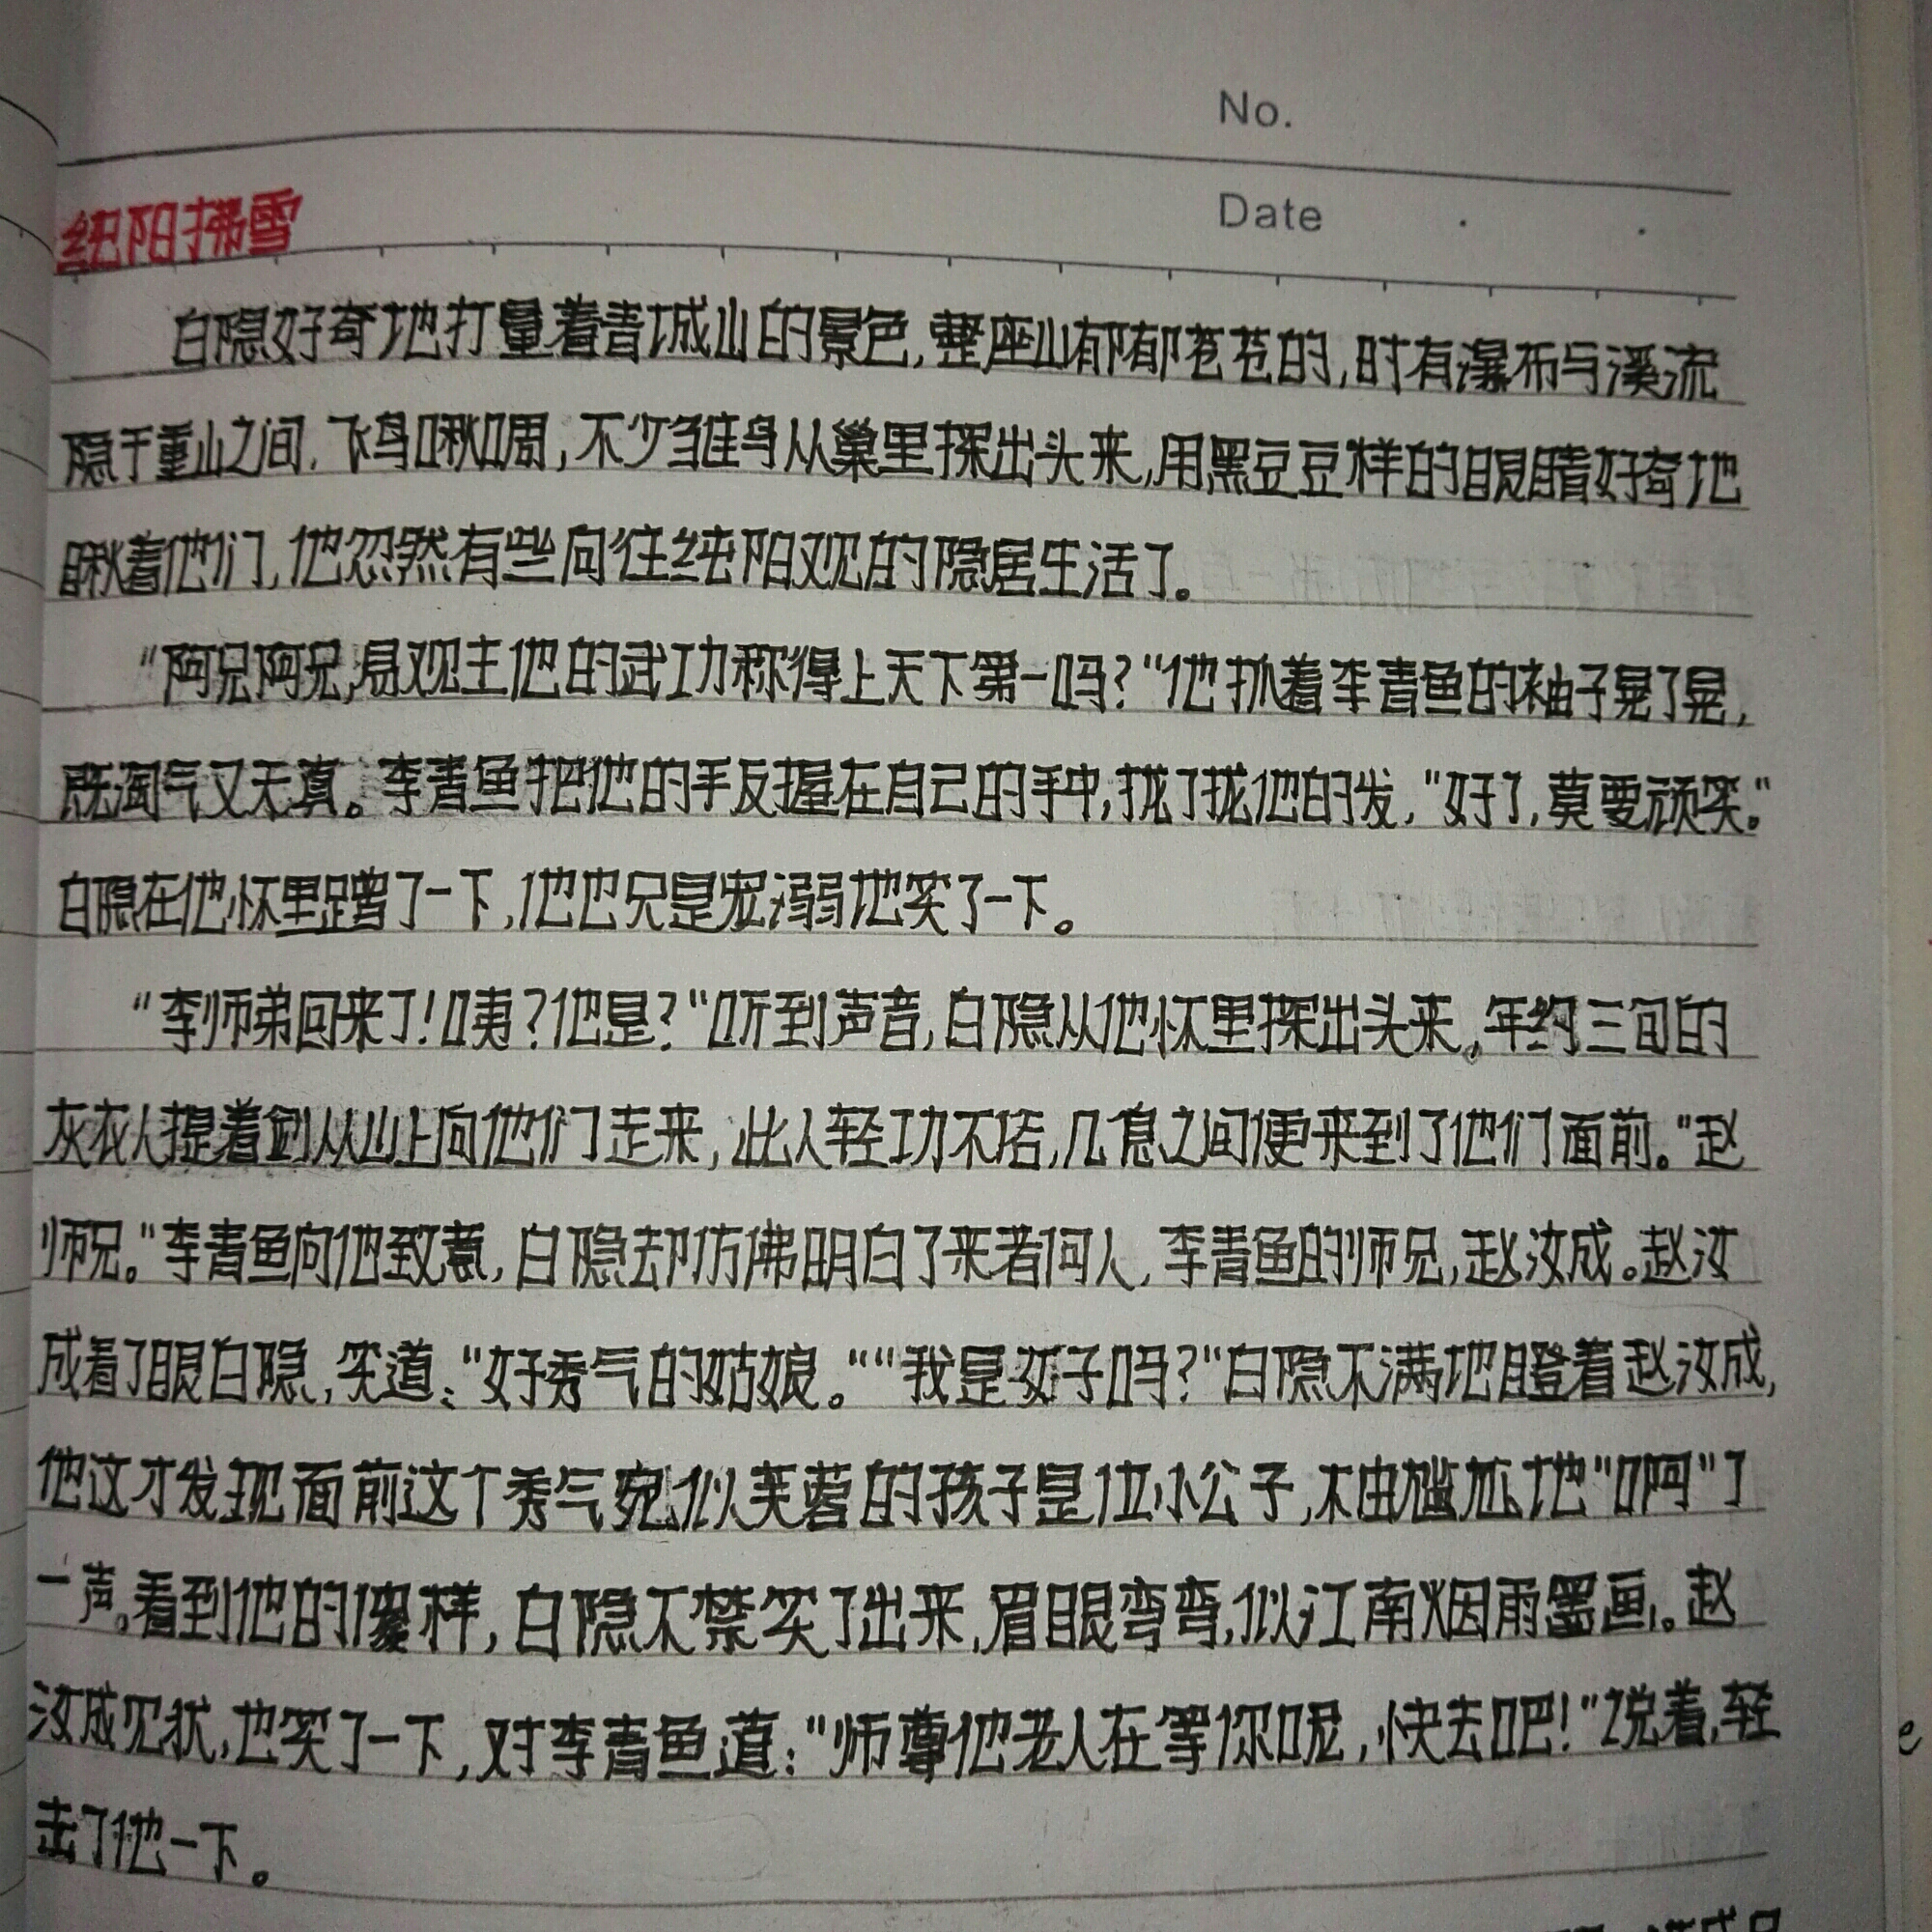 No.
Date
纯阳拂雪
白隐好奇地打量着青城山的景色,整座山郁郁苍苍的,时有瀑布与溪流
隐于重山之间,飞鸟啾啁,不少雏鸟从巢里探出头来,用黑豆豆样的眼睛好奇地
瞅着他们,他忽然有些向往纯阳观的隐居生活了。
"阿兄阿兄,易观主他的武功称得上天下第一吗?"他抓着李青鱼的袖子晃了晃,
既淘气又天真。李青鱼把他的手反握在自己的手中,拢了拢他的发,"好了,莫要顽笑。"
白隐在他怀里蹭了一下,他也只是宠溺地笑了一下。
"李师弟回来了!咦?他是?"听到声音,白隐从他怀里探出头来,年约三旬的
灰衣人提着剑从山上向他们走来,此人轻功不俗,几息之间便来到了他们面前。"赵
师兄。"李青鱼向他致意,白隐却仿佛明白了来者何人,李青鱼的师兄,赵汝成。赵汝
成看了眼白隐,笑道:"好秀气的姑娘。""我是女子吗?"白隐不满地瞪着赵汝成,
他这才发现面前这个秀气宛似芙蓉的孩子是位小公子,不由尴尬地"啊"了
一声,看到他的傻样,白隐不禁笑了出来,眉眼弯弯,似江南烟雨墨画。赵
汝成见状,也笑了一下,对李青鱼道:"师尊他老人在等你呢,快去吧!"说着,轻
击了他一下。